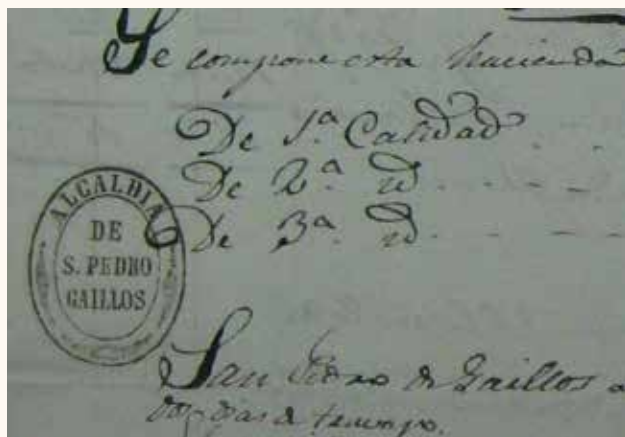 Se compone esta hacienda
De 1ª Calidad
De 2ª id
De 3ª id
ALCALDIA
DE
S. PEDRO
GAILLOS
San Pedro de Gaillos a